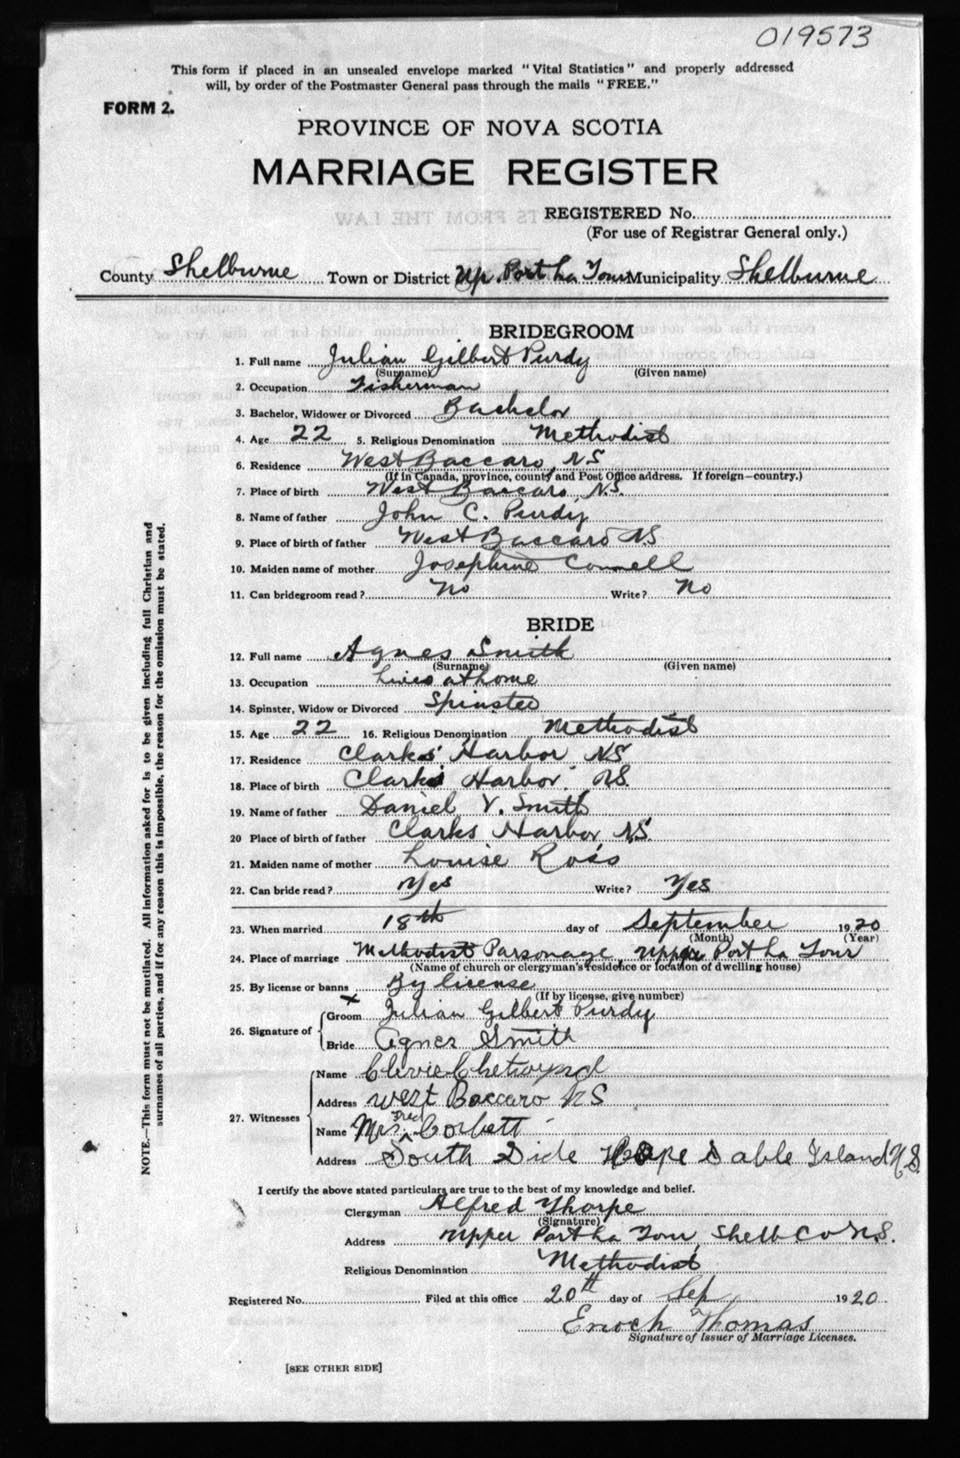 019573
This form if placed in an unsealed envelope marked "Vital Statistics" and properly addressed
will, by order of the Postmaster General pass through the mails "FREE."
FORM 2.
PROVINCE OF NOVA SCOTIA
MARRIAGE REGISTER
REGISTERED No.
(For use of Registrar General only.)
County Shelburne Town or District Up. Port La Tour Municipality Shelburne
BRIDEGROOM
1. Full name Julian Gilbert Purdy
(Surname) (Given name)
2. Occupation Fisherman
3. Bachelor, Widower or Divorced Bachelor
4. Age 22 5. Religious Denomination Methodist
6. Residence West Baccaro, NS
(If in Canada, province, county and Post Office address. If foreign—country.)
7. Place of birth West Baccaro, N.S.
8. Name of father John C. Purdy
9. Place of birth of father West Baccaro NS
10. Maiden name of mother Josephine Connell
11. Can bridegroom read? No Write? No
BRIDE
12. Full name Agnes Smith
(Surname) (Given name)
13. Occupation Lives at home
14. Spinster, Widow or Divorced Spinster
15. Age 22 16. Religious Denomination Methodist
17. Residence Clarks' Harbor NS
18. Place of birth Clarks Harbor NS.
19. Name of father Daniel V. Smith
20 Place of birth of father Clarks Harbor NS.
21. Maiden name of mother Louise Ross
22. Can bride read? Yes Write? Yes
23. When married 18th day of September 1920
(Month) (Year)
24. Place of marriage Methodist Parsonage, Upper Port La Tour
(Name of church or clergyman's residence or location of dwelling house)
25. By license or banns By license
(If by license, give number)
26. Signature of Groom x Julian Gilbert Purdy
Bride Agnes Smith
27. Witnesses Name Chetwynd
Address West Baccaro NS
Name Mrs Fred Corbett
Address South Side Cape Sable Island N.S.
I certify the above stated particulars are true to the best of my knowledge and belief.
Clergyman Alfred Thorpe
(Signature)
Address Upper Port La Tour, Shelb Co N.S.
Religious Denomination Methodist
Registered No. Filed at this office 20th day of Sep 1920
Enoch Thomas
Signature of Issuer of Marriage Licenses.
[SEE OTHER SIDE]
NOTE.—This form must not be mutilated. All information asked for is to be given including full Christian and
surnames of all parties, and if for any reason this is impossible, the reason for the omission must be stated.